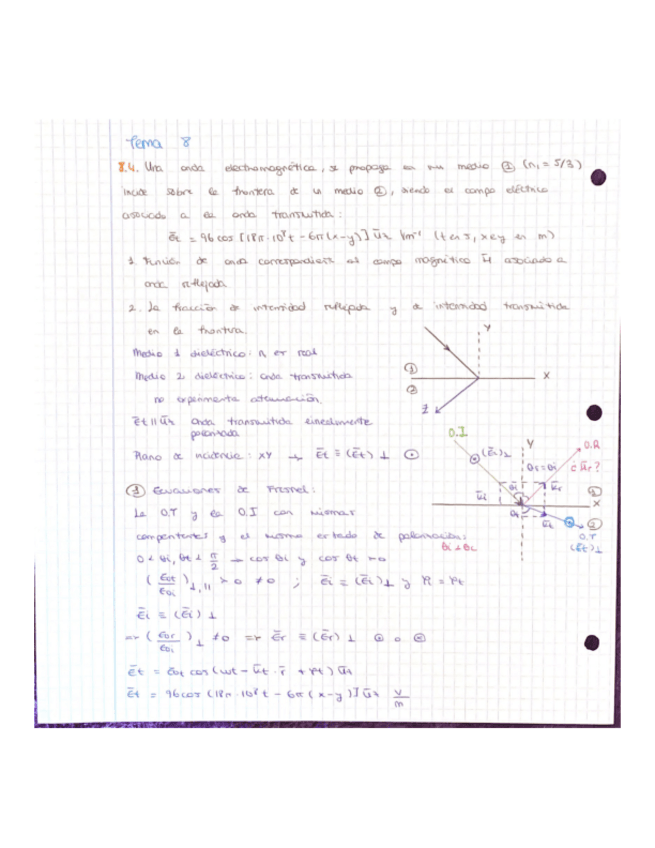 Tema 8
8.4. Una onda electromagnética, se propaga en un medio ① (n₁ = 5/3)
incide sobre la frontera de un medio ②, siendo el campo eléctrico
asociado a la onda transmitida:
ēt = 96 cos [18π·10⁸t - 6π(x-y)] ūz Vm⁻¹ (t en s, x e y en m)
1. Función de onda correspondiente al campo magnético H̄ asociado a
onda reflejada
2. La fracción de intensidad reflejada y de intensidad transmitida
en la frontera.
Y
Medio 1 dieléctrico: n₁ es real
①
X
Medio 2 dieléctrico: onda transmitida
②
no experimenta atenuación.
Z
ēt || ūz Onda transmitida linealmente
polarizada
O.I
Y
O.R
(ēi)⊥
Plano de incidencia: XY → ēt ≡ (ēt)⊥ ⊙
θr = θi
¿ūr?
① Ecuaciones de Fresnel:
ūi
θi
ūr
①
X
La O.T y la O.I con mismas
θt
ūt
②
O.T
componentes y el mismo estado de polarización:
(ēt)⊥
0 < θi, θt < π/2 → cos θi y cos θt > 0
(E0t/E0i)⊥,|| > 0 ≠ 0 ; ēi ≡ (ēi)⊥ y φi = φt
ēi ≡ (ēi)⊥
=> (E0r/E0i)⊥ ≠ 0 => ēr ≡ (ēr)⊥ ⊙ o ⊗
ēt = E0t cos (ωt - k̄t · r̄ + φt) ūz
ēt = 96 cos (18π·10⁸t - 6π(x-y)] ūz V/m